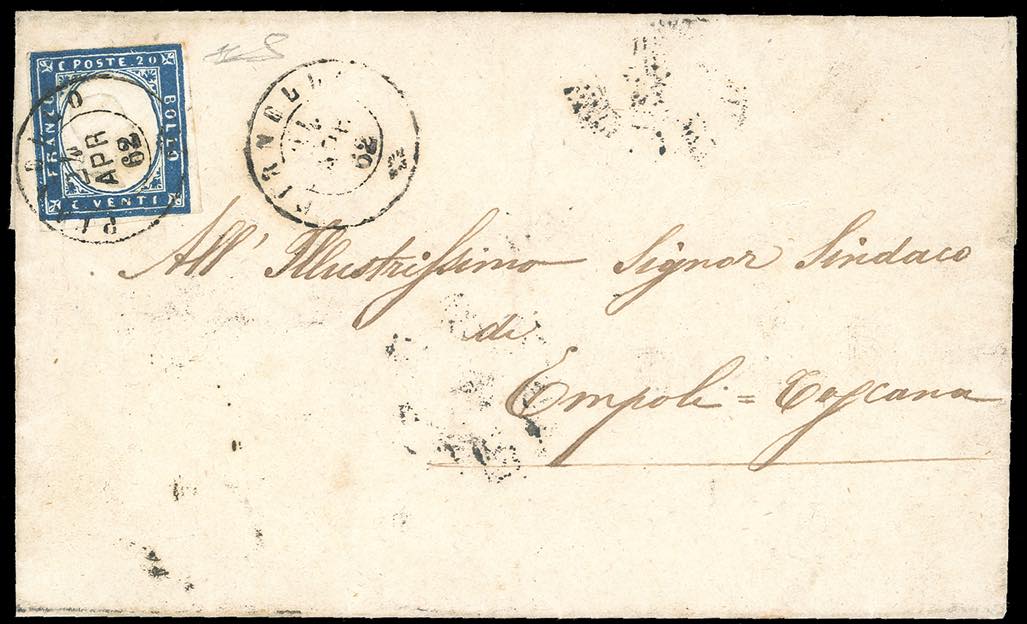 C POSTE. 20
FRANCO
BOLLO
C. VENTI
APR
62
62
All' Illustrissimo Signor Sindaco
di
Empoli = Toscana